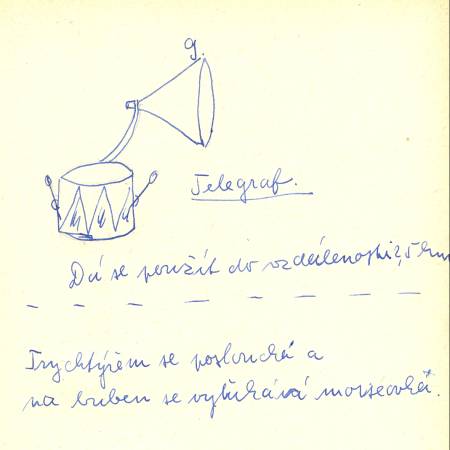 9.
Telegraf.
Dá se použít do vzdálenosti 2,5 km
Trychtýřem se poslouchá a
na buben se vyťukává morseovka.